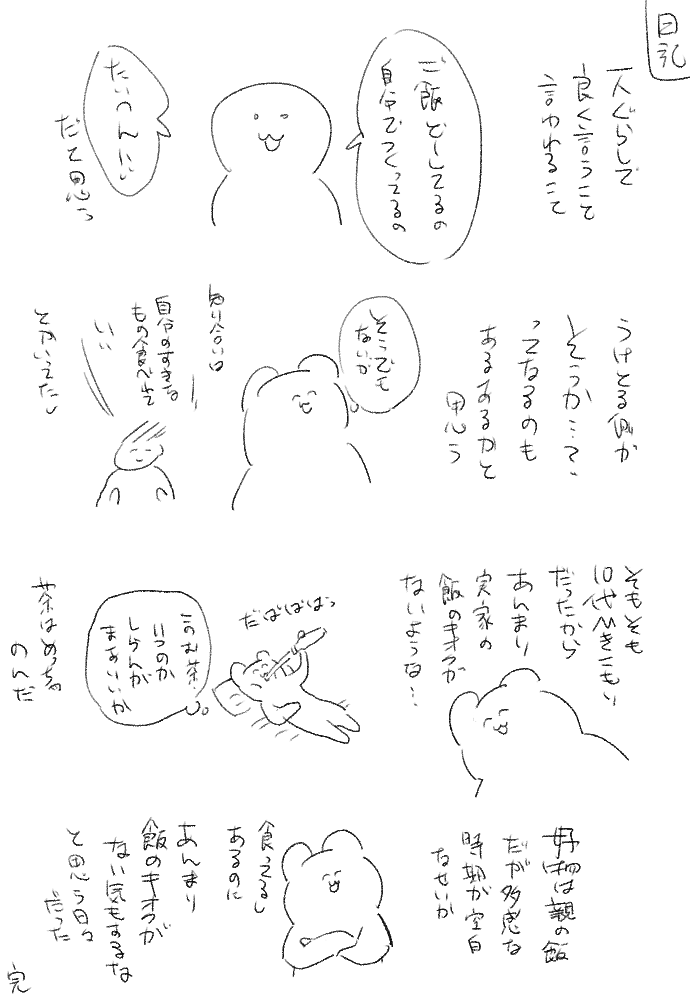 日記
一人ぐらしで
良く言うこと
言われること
ご飯どーしてるの
自分でつくってるの
たいへんにい
だと思う
うけとる側が
そうか…て、
ってなるのも
あるあるかと
思う
そうでも
ないが
知り合いは
自分のすきな
もの食べれて
いい
とかいってたし
そもそも
10代ひきこもり
だったから
あんまり
実家の
飯のキオクが
ないような…
だばばばっ
このむ茶…
いつのか
しらんが
まあいいか
茶はめっちゃ
のんだ
好物は親の飯
だが多感な
時期が空白
なせいか
食ってるし
あるのに
あんまり
飯のキオクが
ない気もするな
と思う日々
だった
完